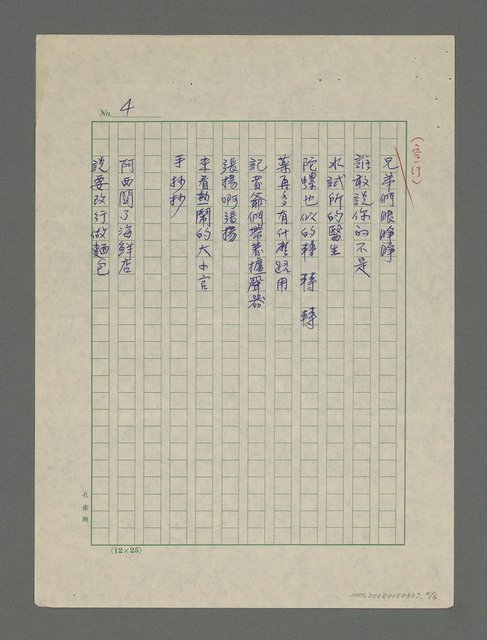 No. 4
(空行)
兄弟們眼睜睜
誰敢說你的不是
水試所的醫生
陀螺也似的轉 轉 轉
藥再多有什麼路用
記者爺們帶著擴聲器
張揚啊張揚
來看熱鬧的大小官
手抄抄
阿西關了海鮮店
說要改行做麵包
孔雀牌
(12×25)